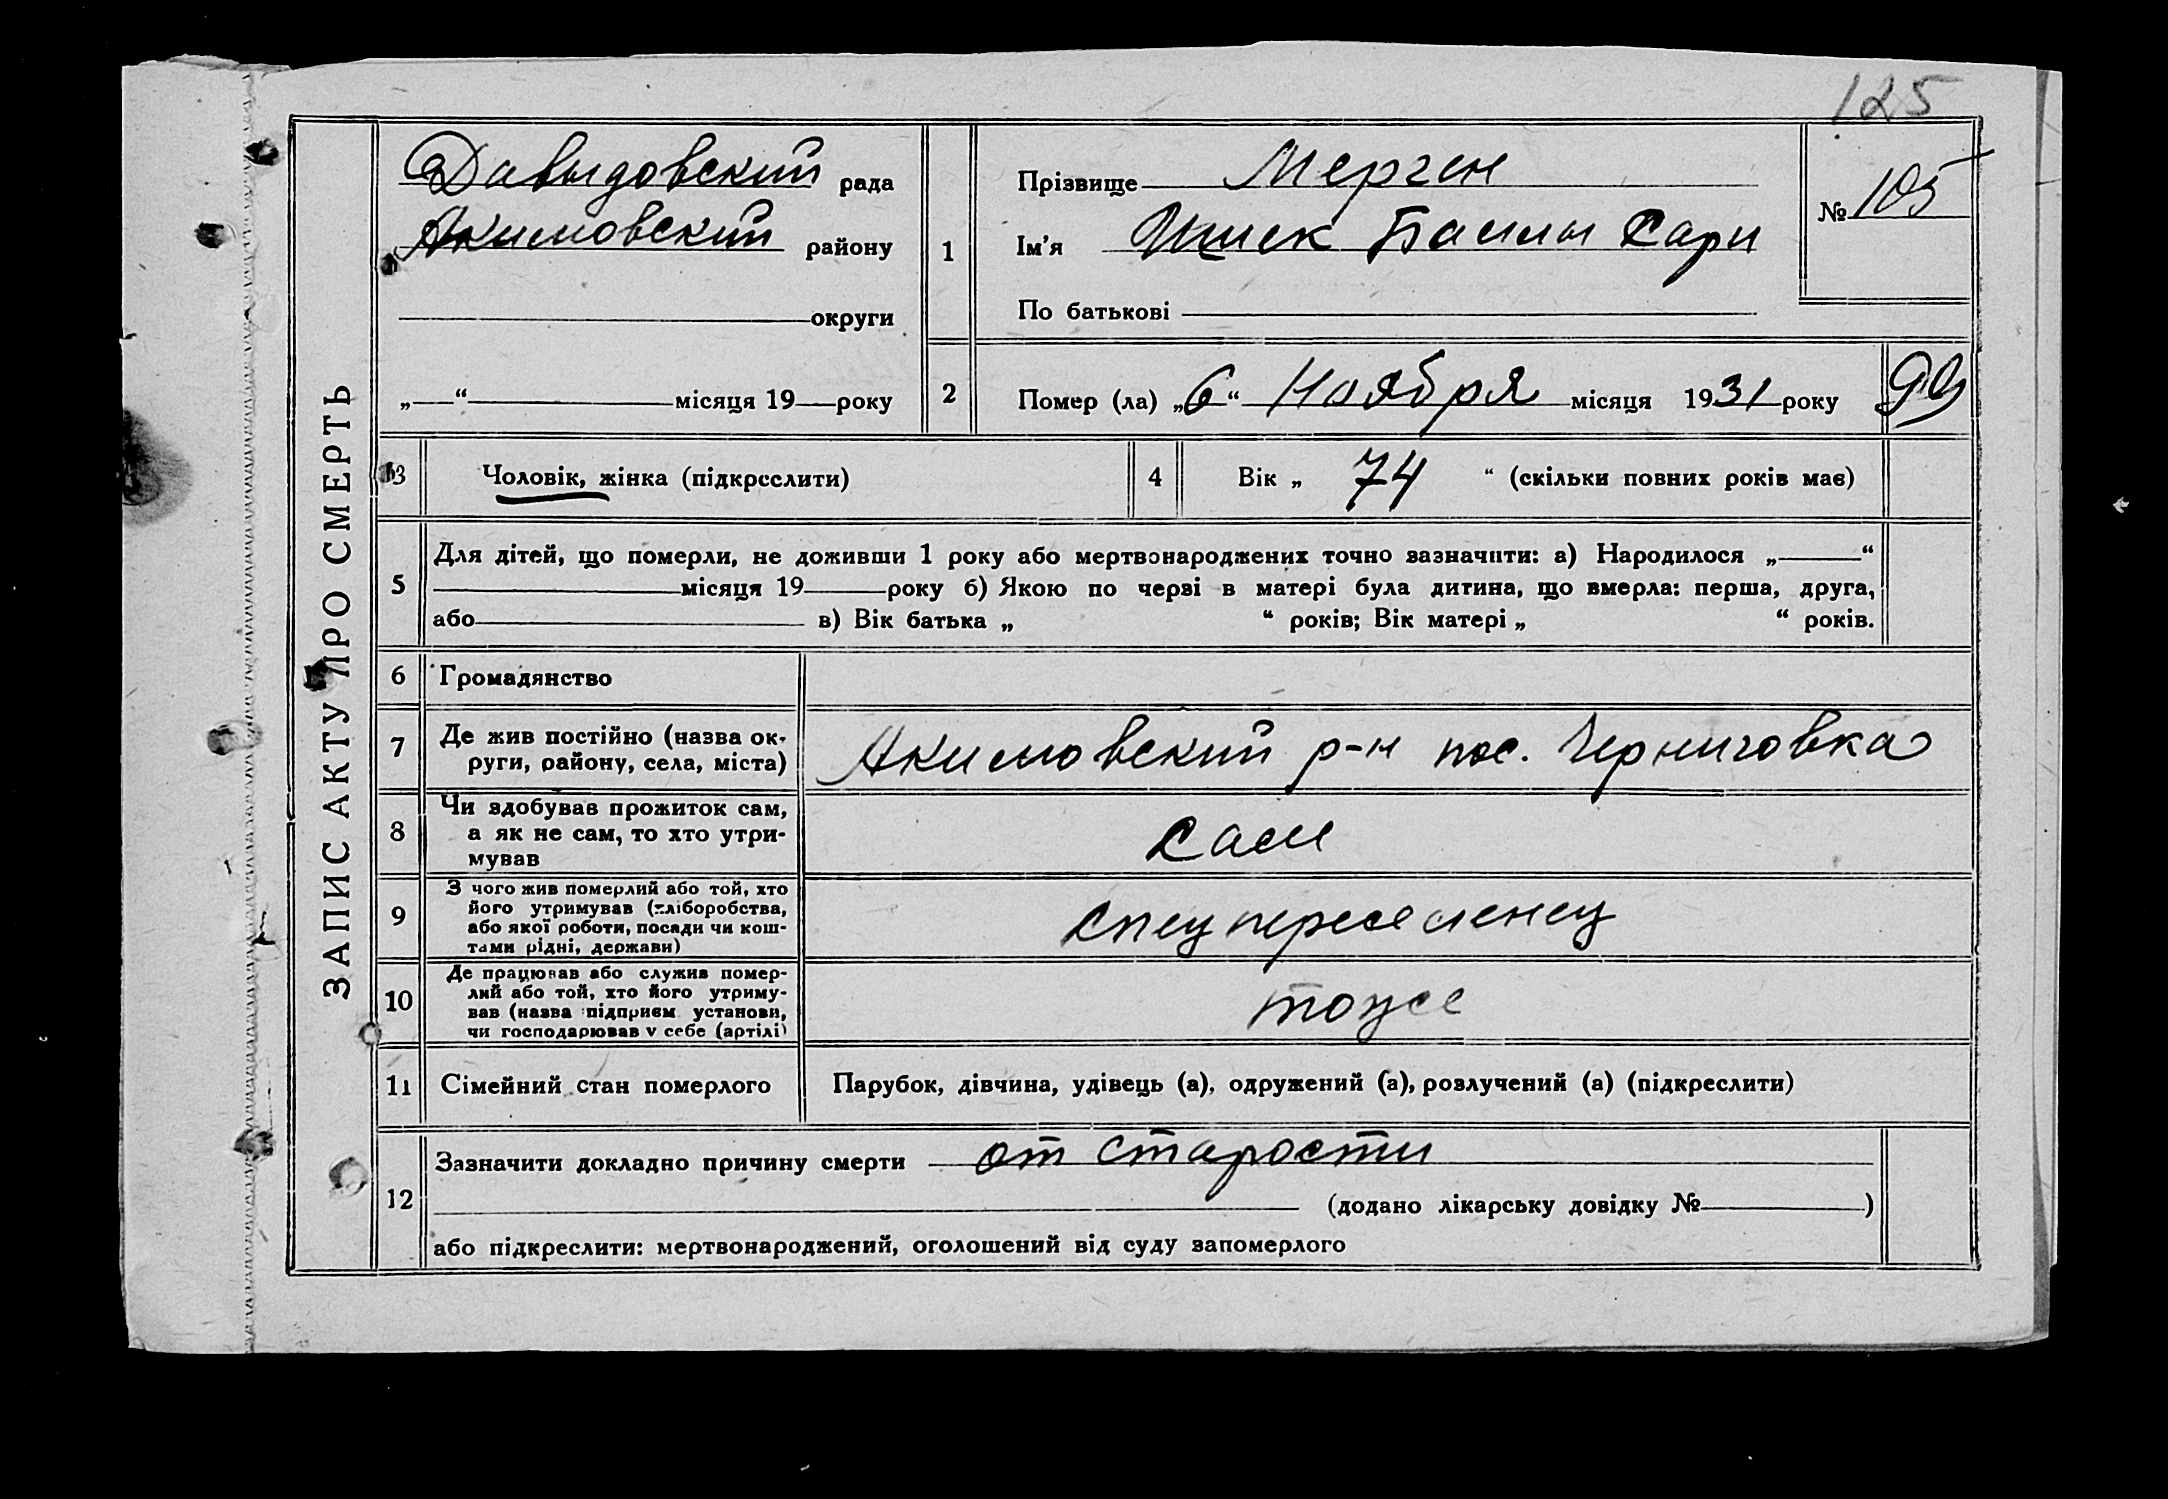 125
ЗАПИС АКТУ ПРО СМЕРТЬ
Давыдовский рада
Акимовский району
округи
„ “ місяця 19 року
1
Прізвище Мерген
Ім’я Баилы Сари
По батькові
№ 105
2
Помер (ла) „6“ Ноября місяця 1931 року
99
3
Чоловік, жінка (підкреслити)
4
Вік „ 74 “ (скільки повних років має)
5
Для дітей, що померли, не доживши 1 року або мертвонароджених точно зазначити: а) Народилося „ “
місяця 19 року б) Якою по черзі в матері була дитина, що вмерла: перша, друга,
або в) Вік батька „ “ років; Вік матері „ “ років.
6
Громадянство
7
Де жив постійно (назва ок-
руги, району, села, міста)
Акимовский р-н пос. Черниговка
8
Чи здобував прожиток сам,
а як не сам, то хто утри-
мував
Сам
9
З чого жив померлий або той, хто
його утримував (хліборобства,
або якої роботи, посади чи кош-
тами рідні, держави)
спецпереселенец
10
Де працював або служив помер-
лий або той, хто його утриму-
вав (назва підприєм. установи,
чи господарював у себе (артілі)
тоже
11
Сімейний стан померлого
Парубок, дівчина, удівець (а), одружений (а), розлучений (а) (підкреслити)
12
Зазначити докладно причину смерти от старости
(додано лікарську довідку № )
або підкреслити: мертвонароджений, оголошений від суду запомерлого